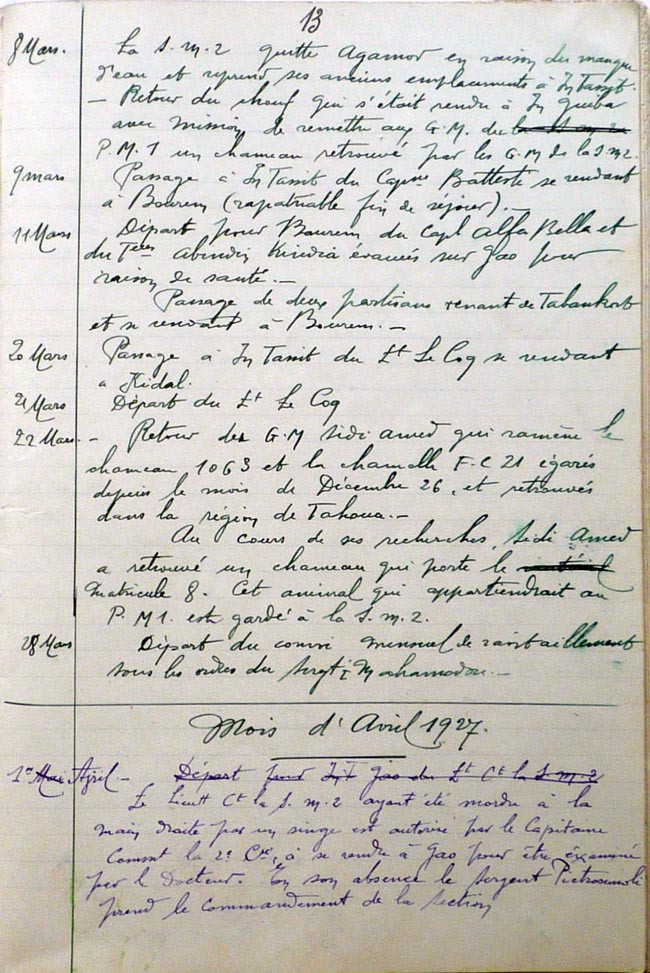 13
8 Mars. La S.M.2 quitte Agamor en raison du manque
d'eau et reprend ses anciens emplacements à In Tassit.
- Retour du chouf qui s'était rendu à In Gueba
avec mission de remettre aux G.M. du
P.M.1 un chameau retrouvé par les G.M de la S.M.2.
9 mars Passage à In Tassit du Capne Battesti se rendant
à Bourem (rapatriable fin de séjour). -
11 Mars Départ pour Bourem du Capl Alfa Bella et
du Tieur Abindin Kiredia évacués sur Gao pour
raison de santé. -
Passage de deux partisans venant de Tabankort
et se rendant à Bourem. -
20 Mars Passage à In Tassit du Lt Le Coq se rendant
a Kidal.
21 Mars Départ du Lt Le Coq
22 Mars. - Retour des G.M Sidi Amed qui ramène le
chameau 1063 et la chamelle F.C 21 égarés
depuis le mois de Décembre 26, et retrouvés
dans la région de Tahoua. -
Au cours de ses recherches, Sidi Amed
a retrouvé un chameau qui porte le
matricule 8. Cet animal qui appartiendrait au
P.M1. est gardé à la S.M.2.
28 Mars Départ du convoi mensuel de ravitaillement
sous les ordres du Sergt I Mahamadou. -
Mois d'Avril 1927.
1er Mai Avril. - Départ pour In T Gao du Lt Ct la S.M.2
Le Lieutt Ct la S.M.2 ayant été mordu à la
main droite par un singe est autorisé par le Capitaine
Commt la 2e Cie, à se rendre à Gao pour être éxaminé
par le Docteur. En son absence le Sergent Pietrosemoli
prend le commandement de la Section